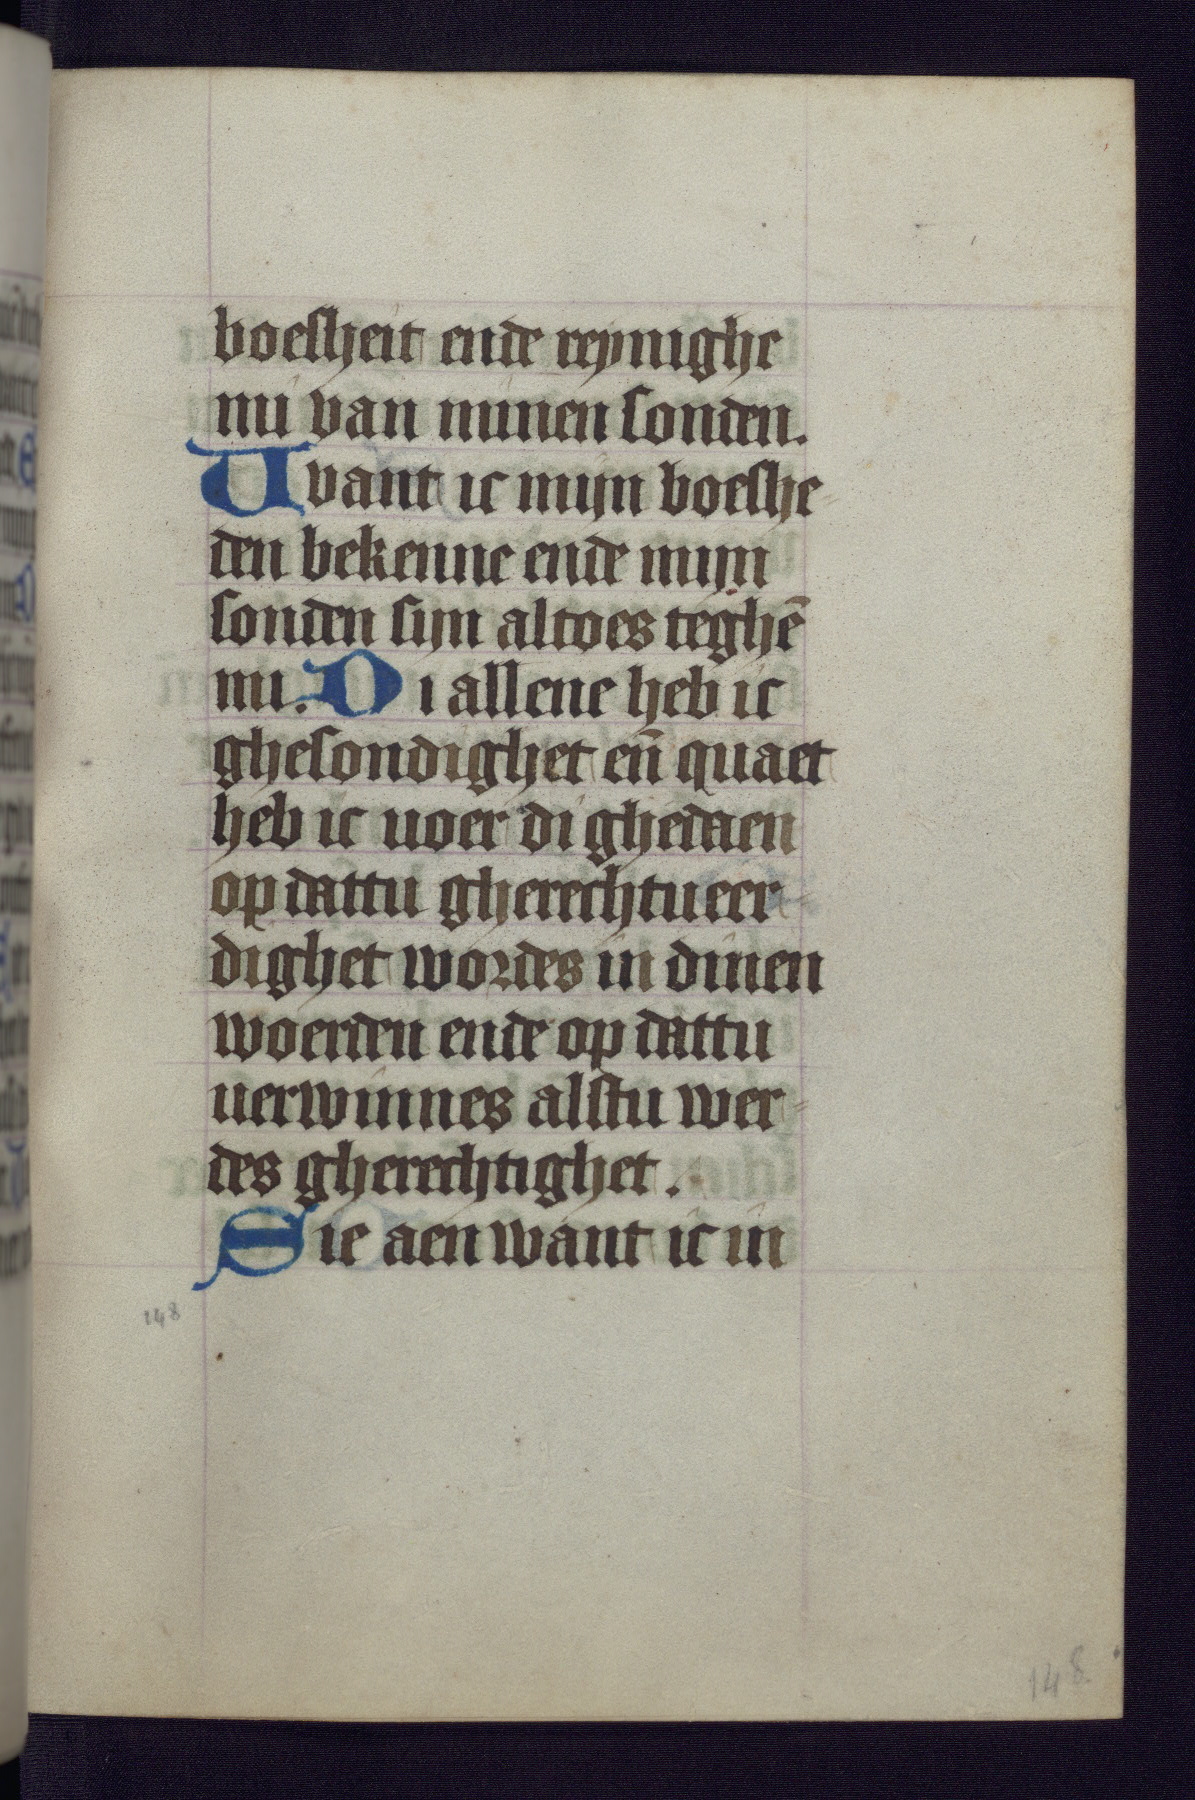 boesheit ende reynighe
mi van minen sonden.
Uvant ic mijn boeshe
den bekenne ende mijn
sonden sijn altoes teghē
mi. Di allene heb ic
ghesondighet eñ quaet
heb ic uoer di ghedaen
op dattu gherechtueer
dighet wordes in dinen
woerden ende op dattu
uerwinnes alstu wer
des gherechtighet.
Sie aen want ic in
148
148